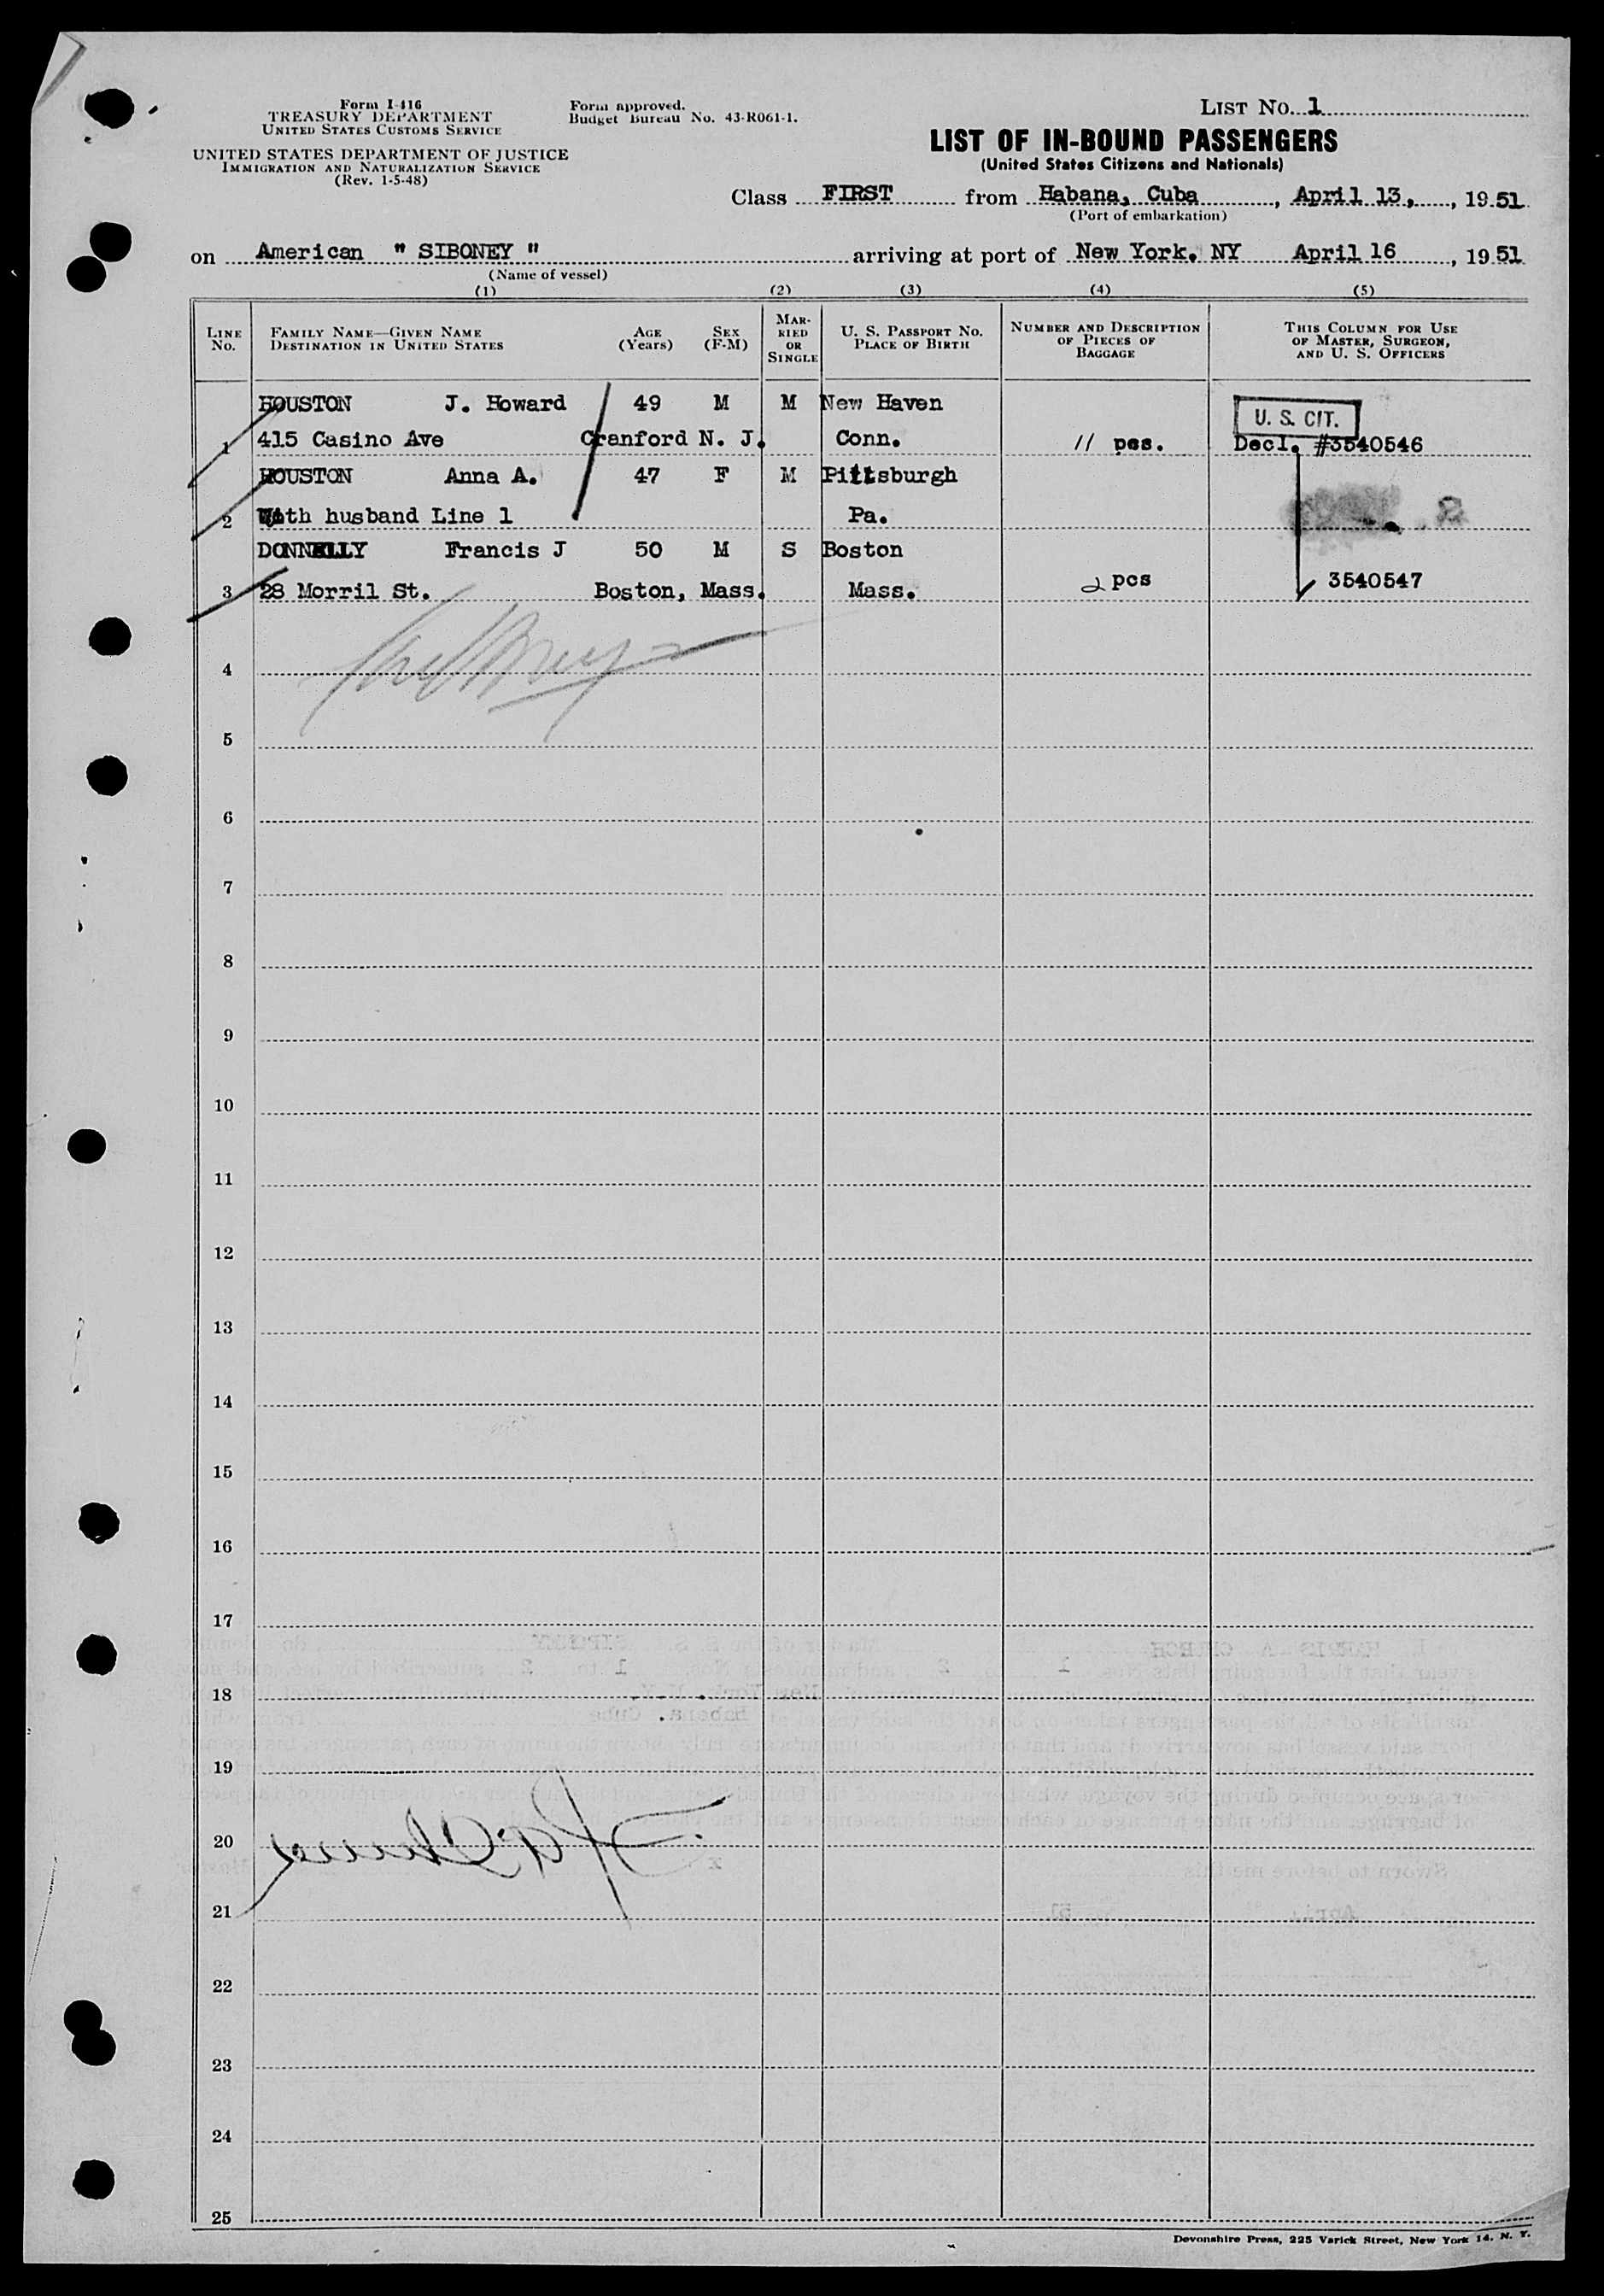 Form I-416
TREASURY DEPARTMENT
UNITED STATES CUSTOMS SERVICE
UNITED STATES DEPARTMENT OF JUSTICE
IMMIGRATION AND NATURALIZATION SERVICE
(Rev. 1-5-48)
Form approved.
Budget Bureau No. 43-R061-1.
LIST NO. 1
LIST OF IN-BOUND PASSENGERS
(United States Citizens and Nationals)
Class FIRST from Habana, Cuba, April 13, 1951
(Port of embarkation)
on American " SIBONEY " arriving at port of New York, NY April 16, 1951
(Name of vessel)
(1) (2) (3) (4) (5)
LINE NO. FAMILY NAME—GIVEN NAME DESTINATION IN UNITED STATES AGE (Years) SEX (F-M) MARRIED OR SINGLE U. S. PASSPORT NO. PLACE OF BIRTH NUMBER AND DESCRIPTION OF PIECES OF BAGGAGE THIS COLUMN FOR USE OF MASTER, SURGEON, AND U. S. OFFICERS
HOUSTON J. Howard 49 M M New Haven U. S. CIT.
1 415 Casino Ave Cranford N. J. Conn. 11 pcs. Decl. #3540546
HOUSTON Anna A. 47 F M Pittsburgh
2 With husband Line 1 Pa.
DONNELLY Francis J 50 M S Boston
3 28 Morril St. Boston, Mass. Mass. 2 pcs 3540547
4
5
6
7
8
9
10
11
12
13
14
15
16
17
18
19
20
21
22
23
24
25
Devonshire Press, 225 Varick Street, New York 14, N. Y.